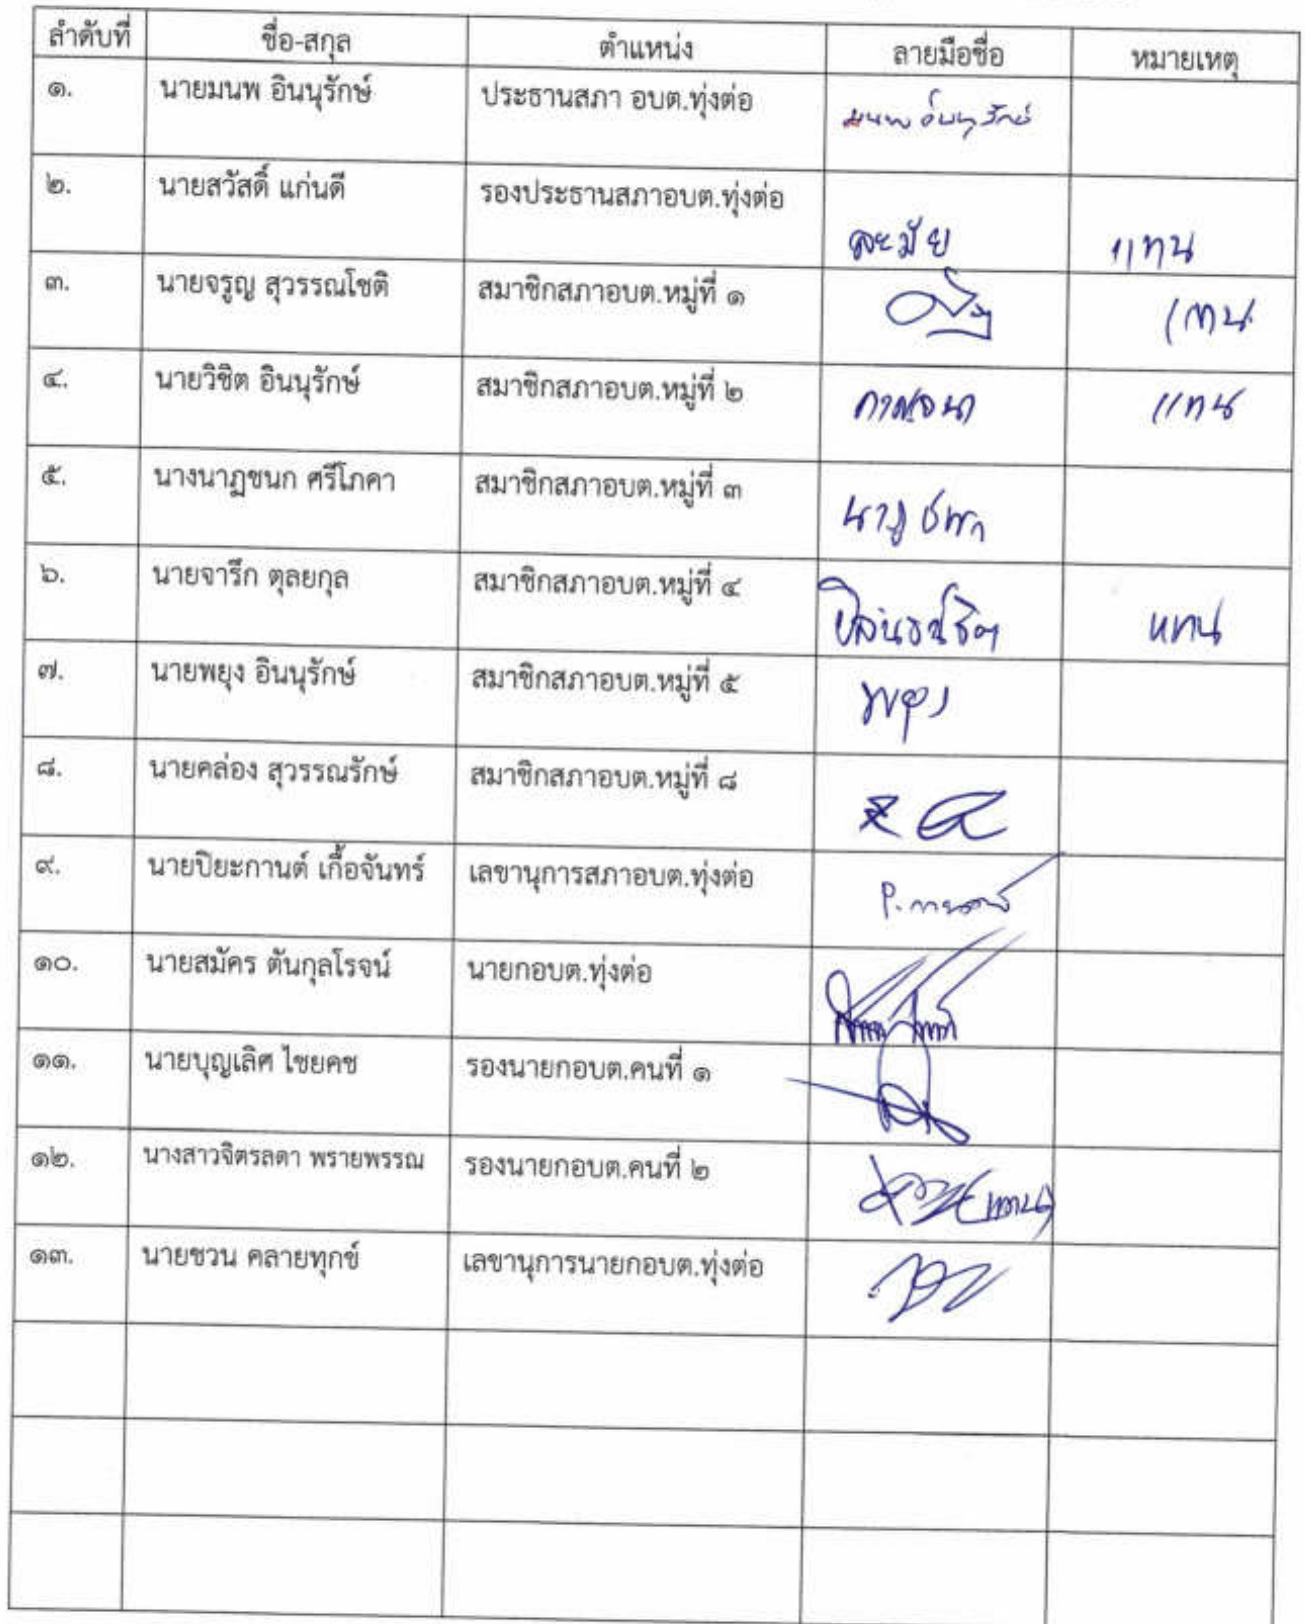 ลำดับที่ ชื่อ-สกุล ตำแหน่ง ลายมือชื่อ หมายเหตุ
๑. นายมนพ อินนุรักษ์ ประธานสภา อบต.ทุ่งต่อ มนพ อินนุรักษ์
๒. นายสวัสดิ์ แก่นดี รองประธานสภาอบต.ทุ่งต่อ ละมัย แทน
๓. นายจรูญ สุวรรณโชติ สมาชิกสภาอบต.หมู่ที่ ๑ แทน
๔. นายวิชิต อินนุรักษ์ สมาชิกสภาอบต.หมู่ที่ ๒ กาญจนา แทน
๕. นางนาฏชนก ศรีโภคา สมาชิกสภาอบต.หมู่ที่ ๓
๖. นายจารึก ตุลยกุล สมาชิกสภาอบต.หมู่ที่ ๔ แทน
๗. นายพยุง อินนุรักษ์ สมาชิกสภาอบต.หมู่ที่ ๕ พยุง
๘. นายคล่อง สุวรรณรักษ์ สมาชิกสภาอบต.หมู่ที่ ๘
๙. นายปิยะกานต์ เกื้อจันทร์ เลขานุการสภาอบต.ทุ่งต่อ
๑๐. นายสมัคร ตันกุลโรจน์ นายกอบต.ทุ่งต่อ
๑๑. นายบุญเลิศ ไชยคช รองนายกอบต.คนที่ ๑
๑๒. นางสาวจิตรลดา พรายพรรณ รองนายกอบต.คนที่ ๒ (แทน)
๑๓. นายชวน คลายทุกข์ เลขานุการนายกอบต.ทุ่งต่อ